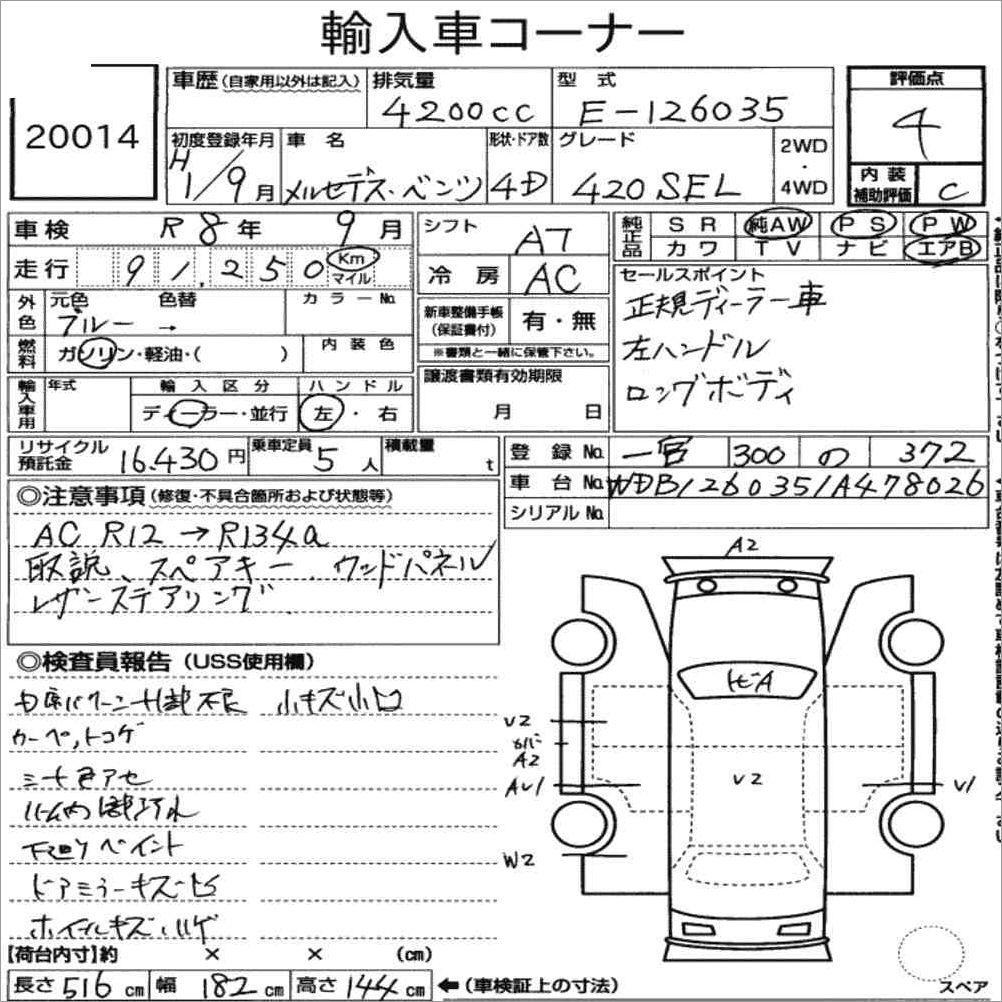 輸入車コーナー
20014
車歴(自家用以外は記入) 排気量 型 式 評価点
4200cc E-126035 4
初度登録年月 車 名 形状・ドア数 グレード 2WD・4WD
H 1/9月 メルセデス・ベンツ 4D 420SEL
内 装 補助評価 C
車検 R 8 年 9 月 シフト AT
純正品 S R 純AW P S P W
カワ T V ナビ エアB
走行 91,250 Km マイル 冷 房 AC
セールスポイント
正規ディーラー車
左ハンドル
ロングボディ
外色 元色 色替 カラーNo.
ブルー →
新車整備手帳(保証書付) 有・無
※書類と一緒に保管下さい。
燃料 ガソリン・軽油・( ) 内 装 色
譲渡書類有効期限
月 日
輸入車用 年式 輸 入 区 分 ハ ン ド ル
ディーラー・並行 左・右
リサイクル預託金 16.430円 乗車定員 5人 積載量 t
登 録 No. 一宮 300 の 372
車 台 No. WDB1260351A478026
シリアルNo.
◎注意事項(修復・不具合箇所および状態等)
AC R12→R134a
取説、スペアキー、ウッドパネル
レザーステアリング
◎検査員報告(USS使用欄)
小キズ小凹
カーペットコゲ
シート色アセ
下廻りペイント
ドアミラーキズ
ホイールキズ ハゲ
A2
トビA
V2
V2
A2
AV1
V1
W2
【荷台内寸】約 × × (cm)
長さ516cm 幅182cm 高さ144cm ←(車検証上の寸法)
スペア